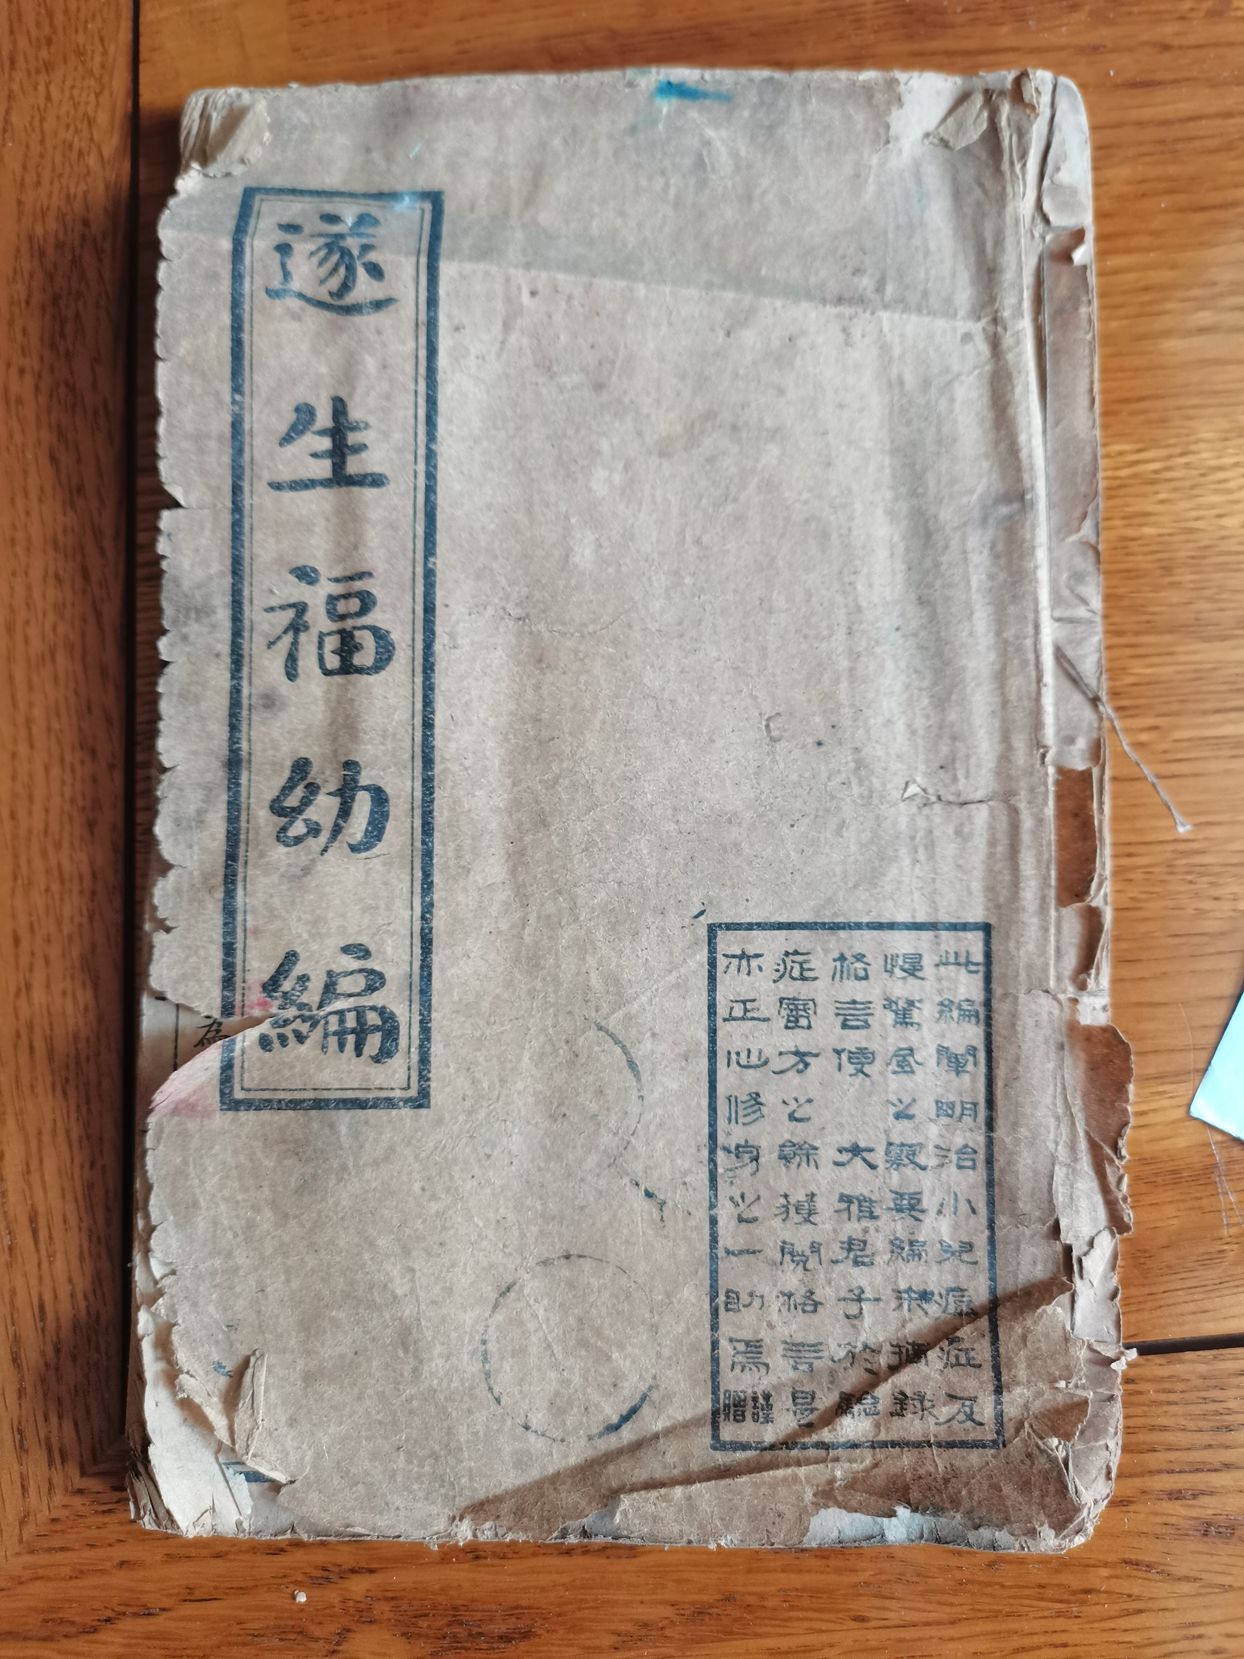 遂生福幼編
此編闡明治小兒痘症及
慢驚風之竅要編末摘錄
格言便 大雅君子於驗
症審方之餘獲閱格言是
亦正心修身之一助焉謹贈
為